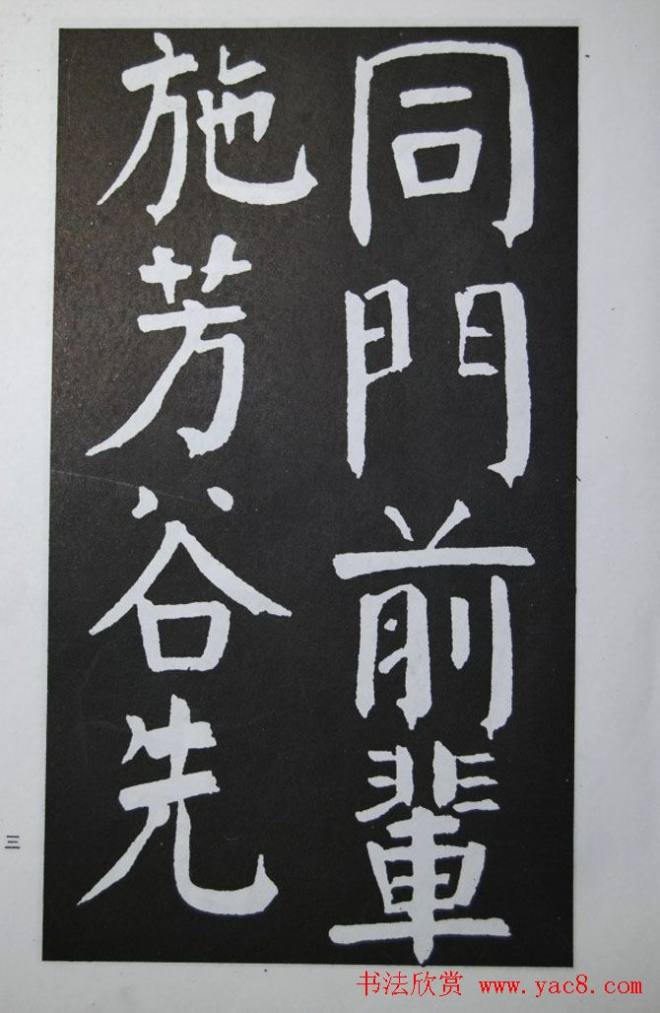 同門前輩
施芳谷先
三
书法欣赏 www.yac8.com